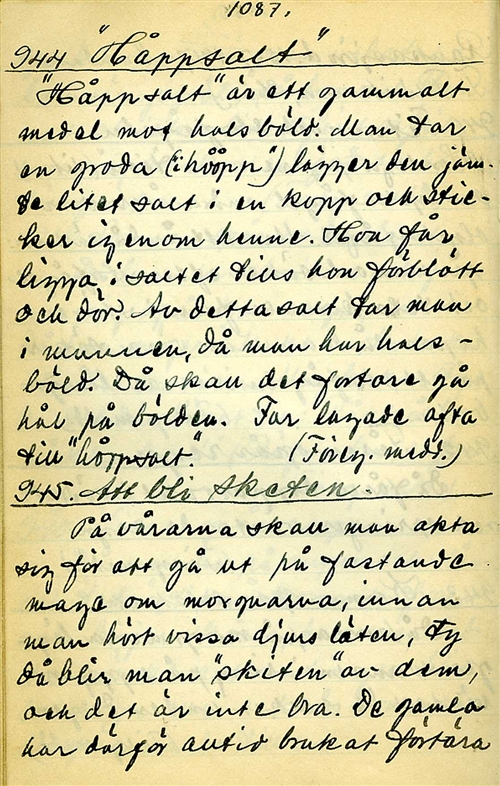 1087.
944 "Håppsalt"
"Håppsalt" är ett gammalt
medel mot halsböld. Man tar
en groda ("i hååpp") lägger den jäm-
te litet salt i en kopp och stic-
ker igenom henne. Hon får
ligga i saltet tills hon förblött
och dör. Av detta salt tar man
i munnen, då man har hals-
böld. Då skall det fortare gå
hål på bölden. Far lagade ofta
till "håppsalt." (Föreg. medd.)
945. Att bli sketen.
På vårarna skall man akta
sig för att gå ut på fastande
mage om morgnarna, innan
man hört vissa djurs läten, ty
då blir man "skiten" av dem,
och det är inte bra. De gamla
har därför alltid brukat förtära